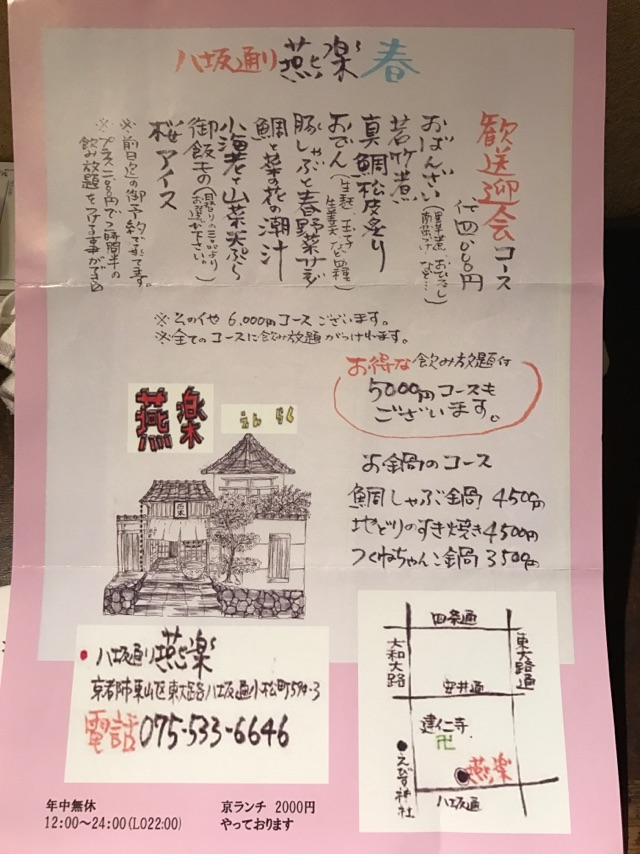 八坂通り 燕楽 春
歓送迎会コース
代四、〇〇〇円
おばんざい
若竹煮
真鯛松皮炙り
おでん
豚しゃぶと春野菜サラダ
鯛と菜の花の潮汁
小海老と山菜天ぷら
御飯もの
桜アイス
※前日迄の御予約です。
飲み放題をつける事ができます
6,000円コースございます。
※全てのコースに飲み放題がつけれます。
お得な飲み放題付
5000円コースも
ございます。
お鍋のコース
鯛しゃぶ鍋 4500円
地どりのすき焼き 4500円
つくねちゃんこ鍋 3500円
燕楽 えんらく
八坂通り燕楽
京都市東山区東大路八坂通小松町594-3
電話 075-533-6646
四条通
大和大路
東大路通
安井通
建仁寺
卍
えびす神社
燕楽
八坂通
年中無休
12:00〜24:00(LO22:00)
京ランチ 2000円
やっております